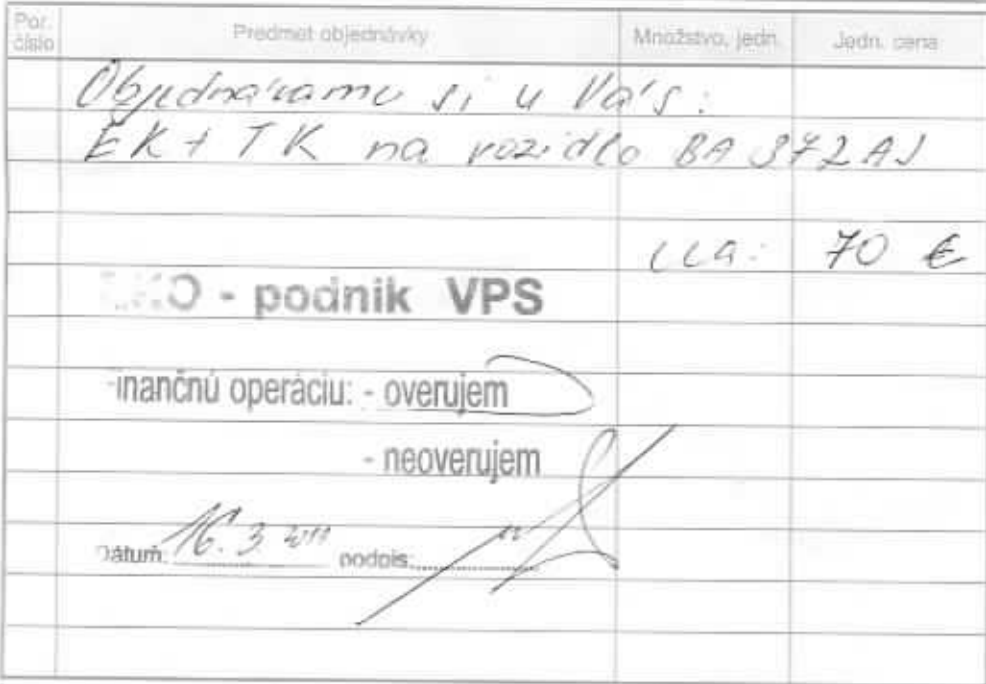 Por. číslo Predmet objednávky Množstvo, jedn. Jedn. cena
Objednávame si u Vás:
EK + TK na vozidlo BA 372AJ
cca: 70 €
EKO - podnik VPS
Finančnú operáciu: - overujem
- neoverujem
Dátum: 16. 3. 2011 podpis: